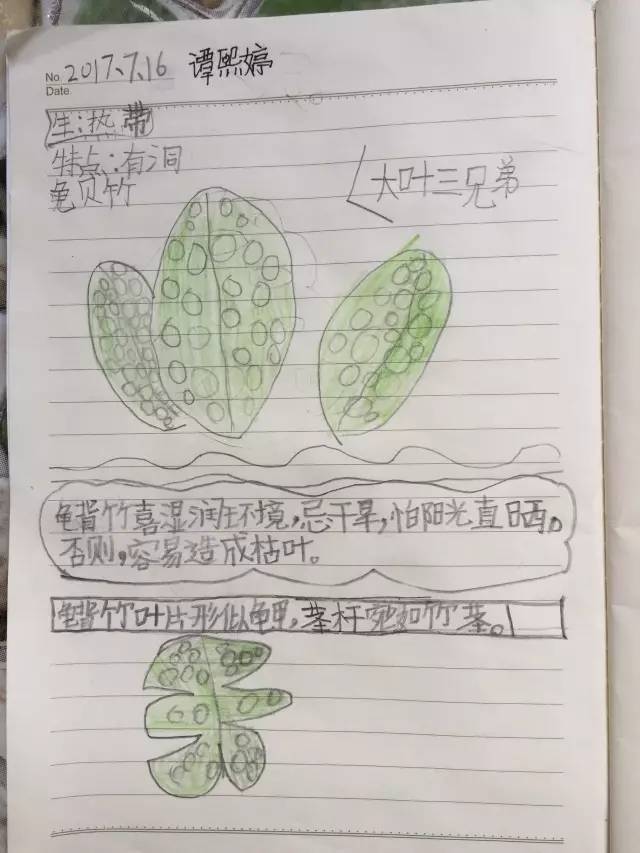 No. 2017、7、16 谭熙婷
Date.
生:热带
特点:有洞
龟贝竹
大叶三兄弟
龟背竹喜湿润环境,忌干旱,怕阳光直晒。
否则,容易造成枯叶。
龟背竹叶片形似龟甲,茎杆宛如竹茎。